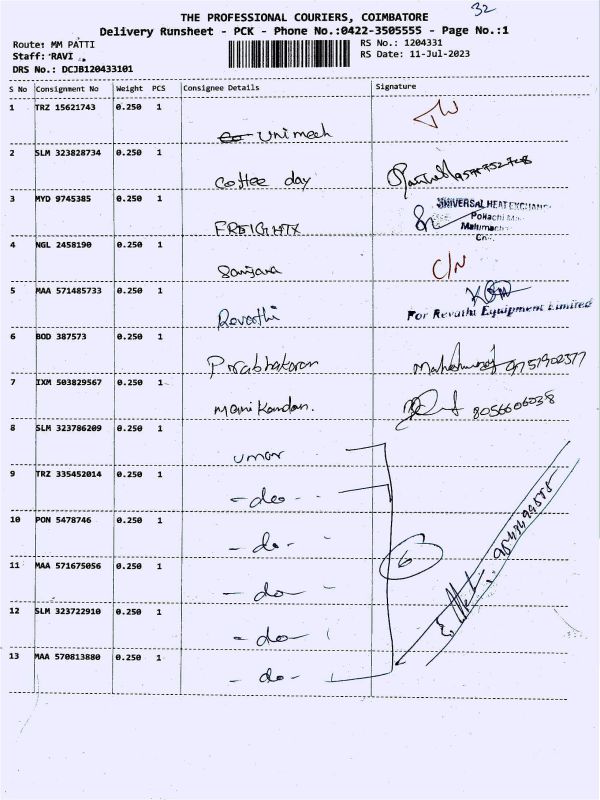 32
THE PROFESSIONAL COURIERS, COIMBATORE
Delivery Runsheet - PCK - Phone No.:0422-3505555 - Page No.:1
Route: MM PATTI
RS No.: 1204331
Staff: RAVI
RS Date: 11-Jul-2023
DRS No.: DCJB120433101
S No Consignment No Weight PCS Consignee Details Signature
1 TRZ 15621743 0.250 1
unimech
2 SLM 323828734 0.250 1
coffee day
3 MYD 9745385 0.250 1
UNIVERSAL HEAT EXCHANG
Pollachi Ma
FREIGHTX
4 NGL 2458190 0.250 1
Sanjana C/N
5 MAA 571485733 0.250 1
Revathi For Revathi Equipment Limited
6 BOD 387573 0.250 1
Prabhakaran 9751902377
7 IXM 503829567 0.250 1
manikandan. 8056606038
8 SLM 323786209 0.250 1
umar
9 TRZ 335452014 0.250 1
- do -
10 PON 5478746 0.250 1
- do -
6
11 MAA 571675056 0.250 1
- do -
12 SLM 323722910 0.250 1
- do -
13 MAA 570813880 0.250 1
- do -